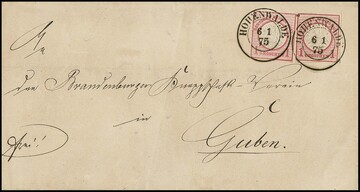 HOHENWALDE HOHENWALDE
6 1 6 1
75 75
An
den Brandenburger Knappschafts-Verein
in
frei! Guben.